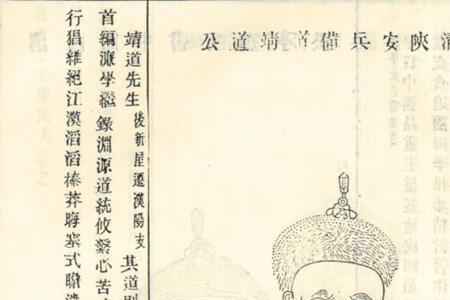 清陝安兵備首靖道公
靖道先生後新屋遷漢陽支其道則
首編濂學繼錄淵源道統攸繫心苦
行猖維絕江漢滔滔榛莽晦塞式瞻